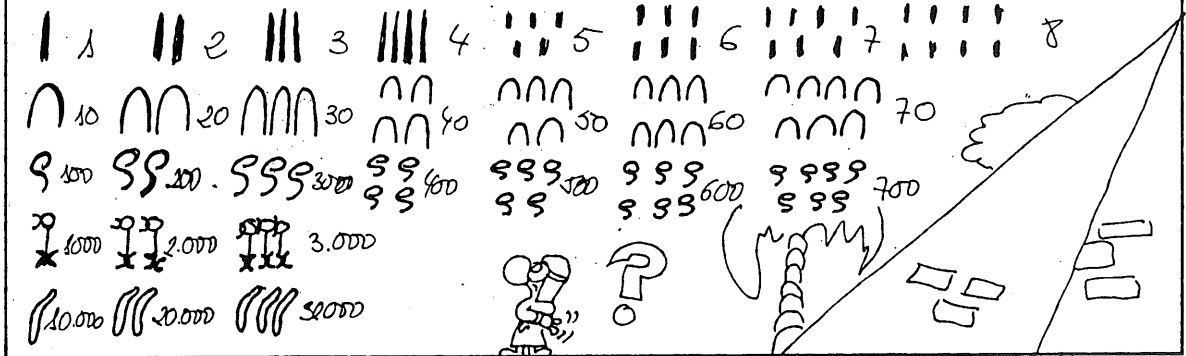 1 2 3 4 5 6 7 8
10 20 30 40 50 60 70
100 200 . 3000 400 500 600 700
1000 2.000 3.000 ?
10.000 20.000 30000